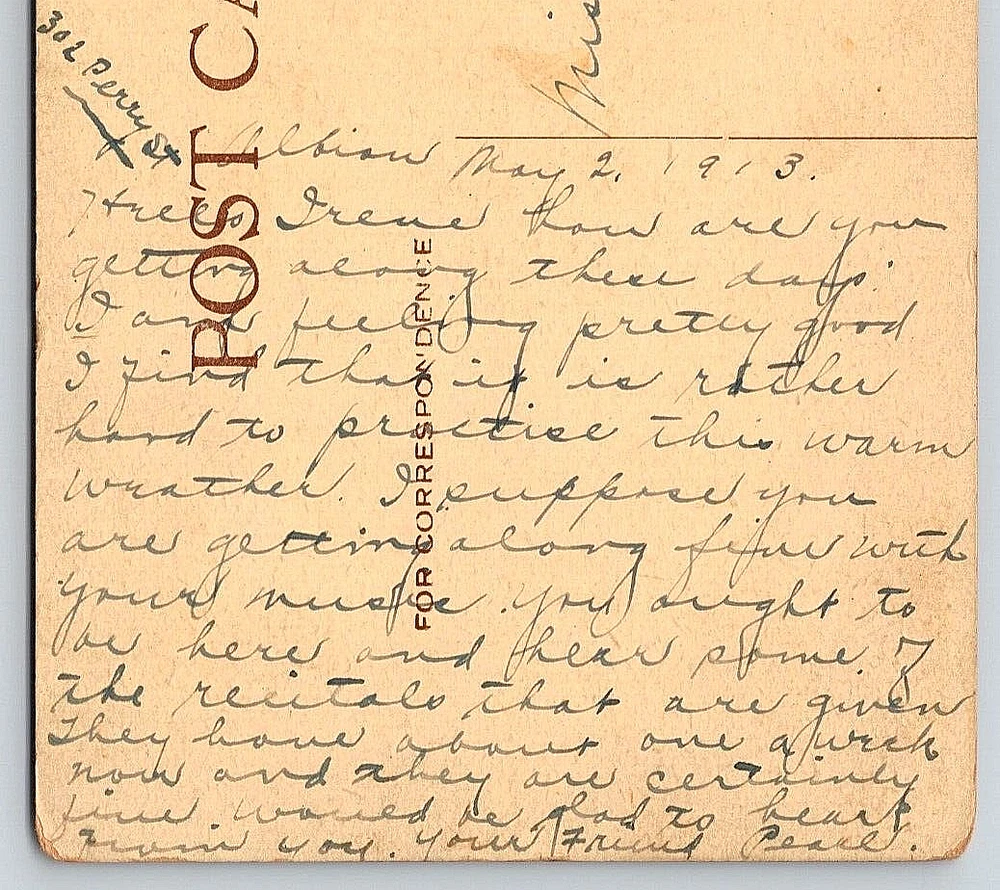 302 Perry St
POST CA
FOR CORRESPONDENCE
Mis
Albion May 2, 1913.
Hello Irene how are you
getting along these days.
I am feeling pretty good
I find that it is rather
hard to practise this warm
weather. I suppose you
are getting along fine with
your music. You ought to
be here and hear some of
the recitals that are given
They have about one a week
now and they are certainly
fine. would be glad to hear
From you. Your Friend Pearl.